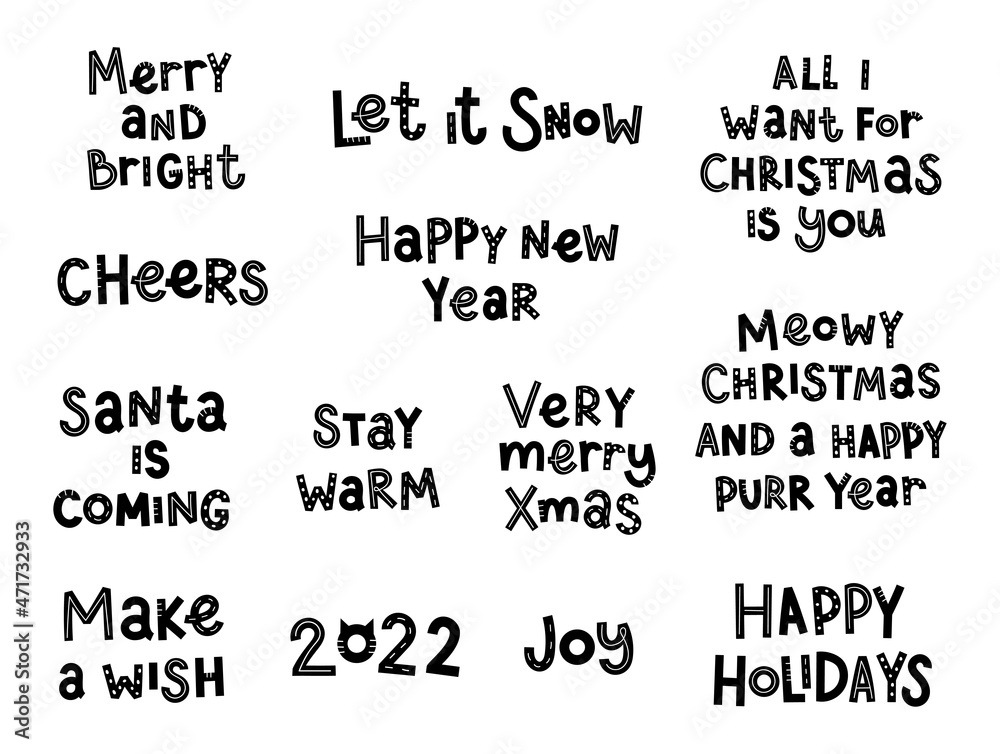 Merry
and
Bright
Let it Snow
All I
want for
Christmas
is you
Cheers
Happy New
Year
Meowy
Christmas
and a happy
purr year
Santa
is
coming
Stay
warm
Very
merry
Xmas
Make
a wish
2022
Joy
Happy
Holidays
Adobe Stock | #471732933